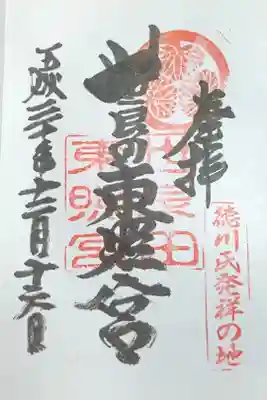 奉拝
徳川氏発祥の地
世良田東照宮
世良田
東照宮
平成二十年十二月十六日